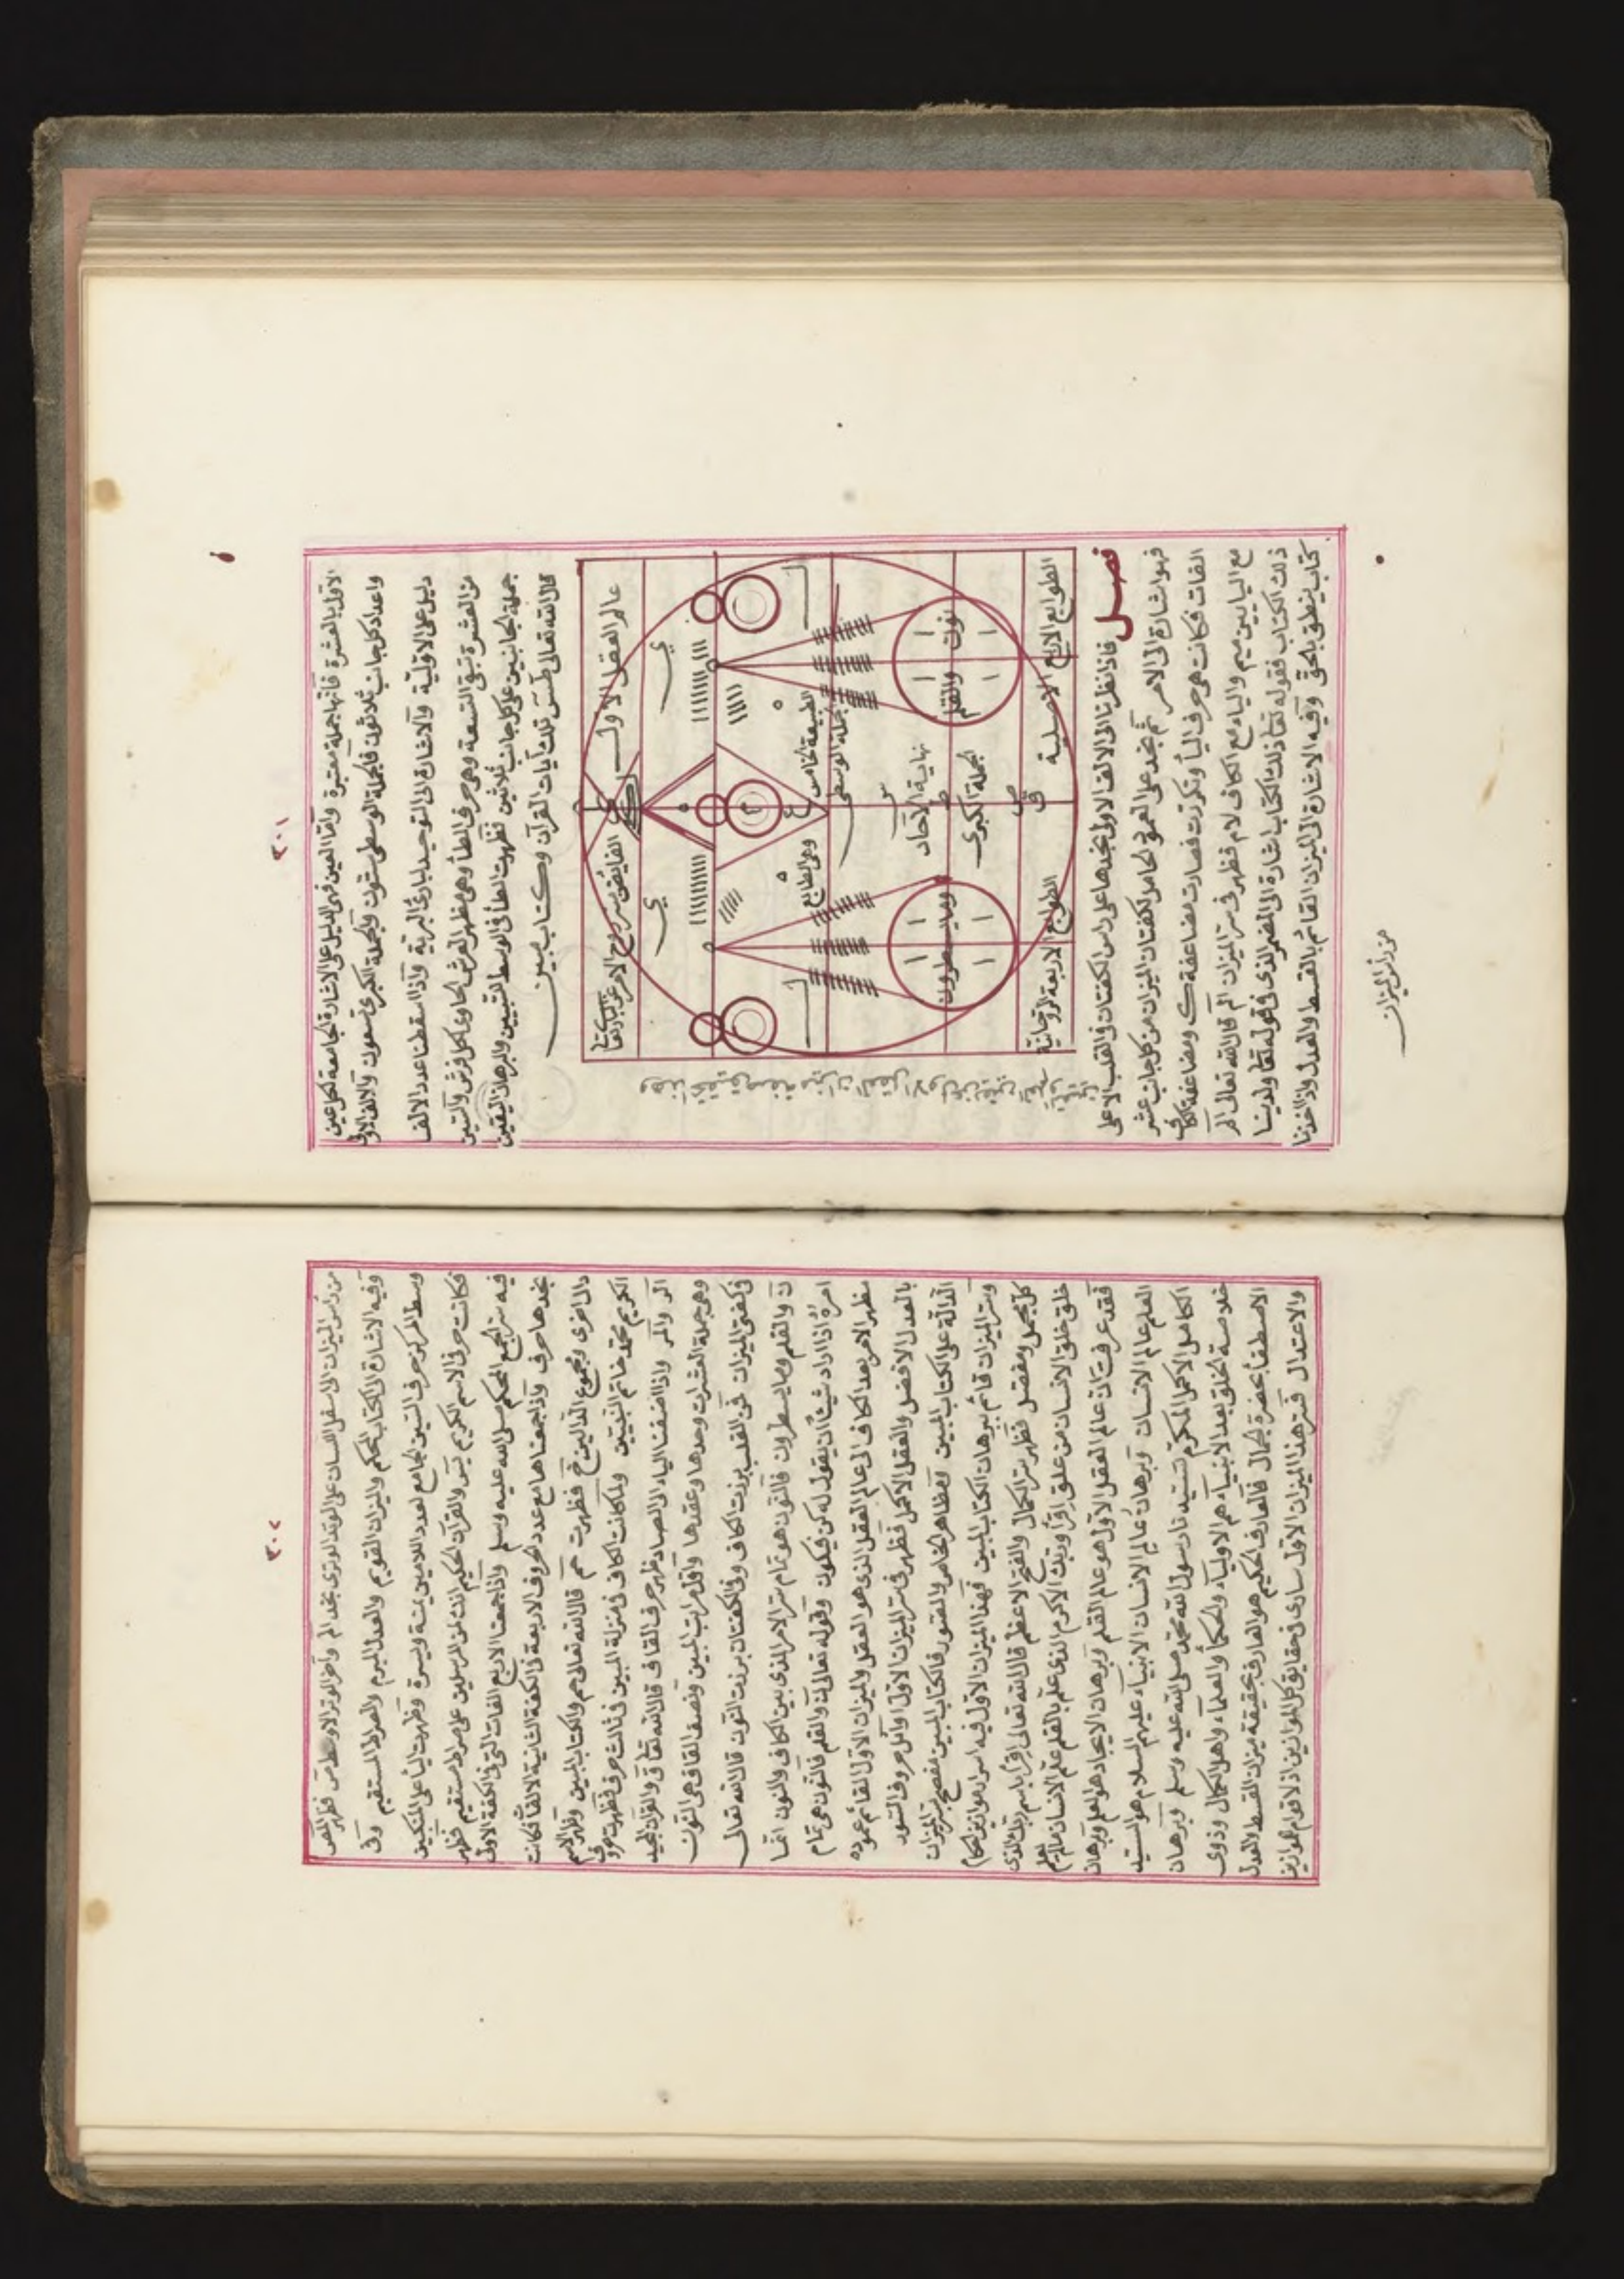 ٣٠١
الاول بالعشرة فانها جملة معتبرة واما العين فهى الدليل على الاشارة الجامعة لكل عين
واعداد كل جانب ثلاثون فالجملة الوسطى ستون والجملة الكبرى تسعون والالف الاولى
دليل على الاولية والاشارة الى التوحيد لبارئ البرية واذا اسقطنا عدد الالف
من العشرة تبقى التسعة وهى حرف الطأ وهى مظهر العرش الحاوى لكل فرش والستين
جملة الجانبين على كل جانب ثلاثين فظهرت الطأ فى الوسط للتبيين والبرهان اليقين
قال الله تعالى طس تلك آيات القرآن وكتاب مبين
عالم العقل الاول
الفايض بروح الامر عن
ى
ى
ل
ل
الطبيعة الخامس
وهى الطابع
الجملة الوسطى
نهاية الآحاد
الجملة الكبرى
ن والقلم
وما يسطرون
ص
ق
الطوابع الاربع الاصلية
الطوابع الاربعة الروحانية
فصل فاذا نظرنا الى الالف الاولى نجدها على راس الكفتان فى القلب الاعلى
فهو اشارة الى الامر ثم نجد على العمود الحامل لكفتان الميزان من كل جانب عشر
الفات فكانت هى حرف اليأ وتكررت فصارت مضاعفة ك ومضاعفة الكاف
مع اليا يين ميم والياء مع الكاف لام فظهر فى سر الميزان الم قال الله تعالى الم
ذلك الكتاب فقوله تعا ذلك الكتاب اشارة الى المضمر الذى فى قوله تعا ولدينا
كتاب ينطق بالحق وفيه الاشارة الى الميزان القائم بالقسط والعدل واذا اخذنا
من رأس الميزان
٣٠٢
من رأس الميزان الى اسفل اللسان على الوتد الوترى نجد الم واخر الوتر الاوسط ص فظهر المص
وفيه الاشارة الى الكتاب المحكم والميزان القويم والعدل المبرم والصراط المستقيم وفى
وسط المركز حرف السين الجامع لعدد اللامين يمنة ويسرة وظهرت اليأ على المنكبين
فكانت حرفى الاسم الكريم يس والقرآن الحكيم انك لمن المرسلين على صراط مستقيم فظهر
فيه سر الجمع المحكم صلى الله عليه وسلم واذا جمعنا الاربع الفات التى فى الكفة الاولى
نجدها حرف د واذا جمعناها مع عدد الحروف الاربعة فى الكفة الثانية الالفا فكانت
دالا اخرى ومجموع الدالين ح فظهرت حم قال الله تعالى حم والكتاب المبين وظهر الاسم
الكريم محمد خاتم النبيين ولما كانت الكاف فى منزلة المبين فى ثالث حرف فظهرت حروف
الر والمر واذا اضفنا الياء الى الصاد ظهر حرف القاف قال الله تعا ق والقرآن المجيد
وهى جملة العشرات وحدها وعقدها واقل مراتب المبين ونصف القاف هى النون
فى كفتى الميزان فمن القلب برزت الكاف وفى الكفتان برزت النون قال الله تعالى
ن والقلم وما يسطرون فالنون هو تمام سر الامر الذى بين الكاف والنون انما
امره اذا اراد شيئا ان يقول له كن فيكون وقوله تعالى ن والقلم فالنون هى تمام
مظهر الامر بعد الكاف الى عالم العقل الذى هو العقل والميزان الاول القائم عموده
بالعدل الافضل والعقل الاكمل فظهر فى سر الميزان الاول اوائل حروف السور
الدالة على الكتاب المبين فالكتاب المبين مفصح بسر الميزان
وسر الميزان قائم ببرهان الكتاب المبين فهذا الميزان الاول فيه اسرار موازين احكام
كل مجمل ومفصل فظهر سر الكمال والفتح الاعظم قال الله تعالى اقرأ باسم ربك الذى
خلق خلق الانسان من علق اقرأ وربك الاكرم الذى علم بالقلم علم الانسان مالم يعلم
فقد عرفت ان عالم العقل الاول هو عالم القلم وبرهان الايجاد هو العلم وبرهان
العلم عالم الانسان وبرهان عالم الانسان الانبياء عليهم السلام هو السيد
الكامل الاكمل المكرم سيدنا رسول الله محمد صلى الله عليه وسلم وبرهان
خلاصة الخلق بعد الانبياء هم الاولياء والحكمأ والعلماء واهل الكمال وذوى
الاصطفأ بحضرة الجمال فالعارف الحكيم هو العارف بحقيقة ميزان القسط والعدل
والاعتدال فسر هذا الميزان الاول سارى فى حقايق كل الموازين اذ لا قوام لموازين